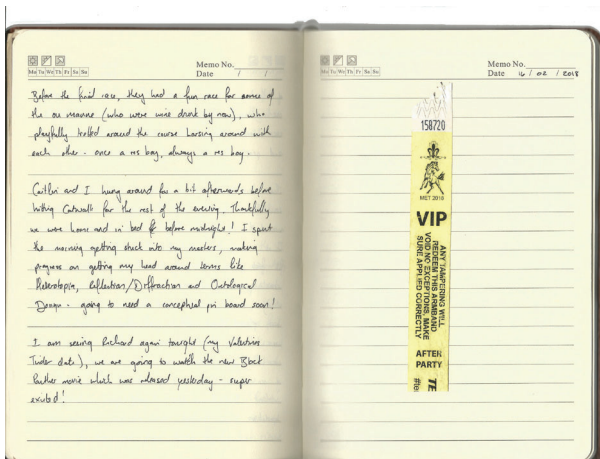 Memo No.
Mo Tu We Th Fr Sa Su
Date / /
Before the final race, they had a fun race for some of
the ou manne (who were wine drunk by now), who
playfully trotted around the course horsing around with
each other - once a res boy, always a res boy.
Caitlin and I hung around for a bit afterwards before
hitting Catwalk for the rest of the evening. Thankfully
we were home and in bed before midnight! I spent
the morning getting stuck into my masters, making
progress on getting my head around terms like
Heterotopia, Reflection/Diffraction and Ontological
Design - going to need a conceptual pin board soon!
I am seeing Richard again tonight (my Valentines
Tinder date), we are going to watch the new Black
Panther movie which was released yesterday - super
excited!
Memo No.
Mo Tu We Th Fr Sa Su
Date 16 / 02 / 2018
158720
MET 2018
VIP
ANY TAMPERING WILL
REDEEM THIS ARMBAND
VOID NO EXCEPTIONS, MAKE
SURE APPLIED CORRECTLY
AFTER
PARTY
TE